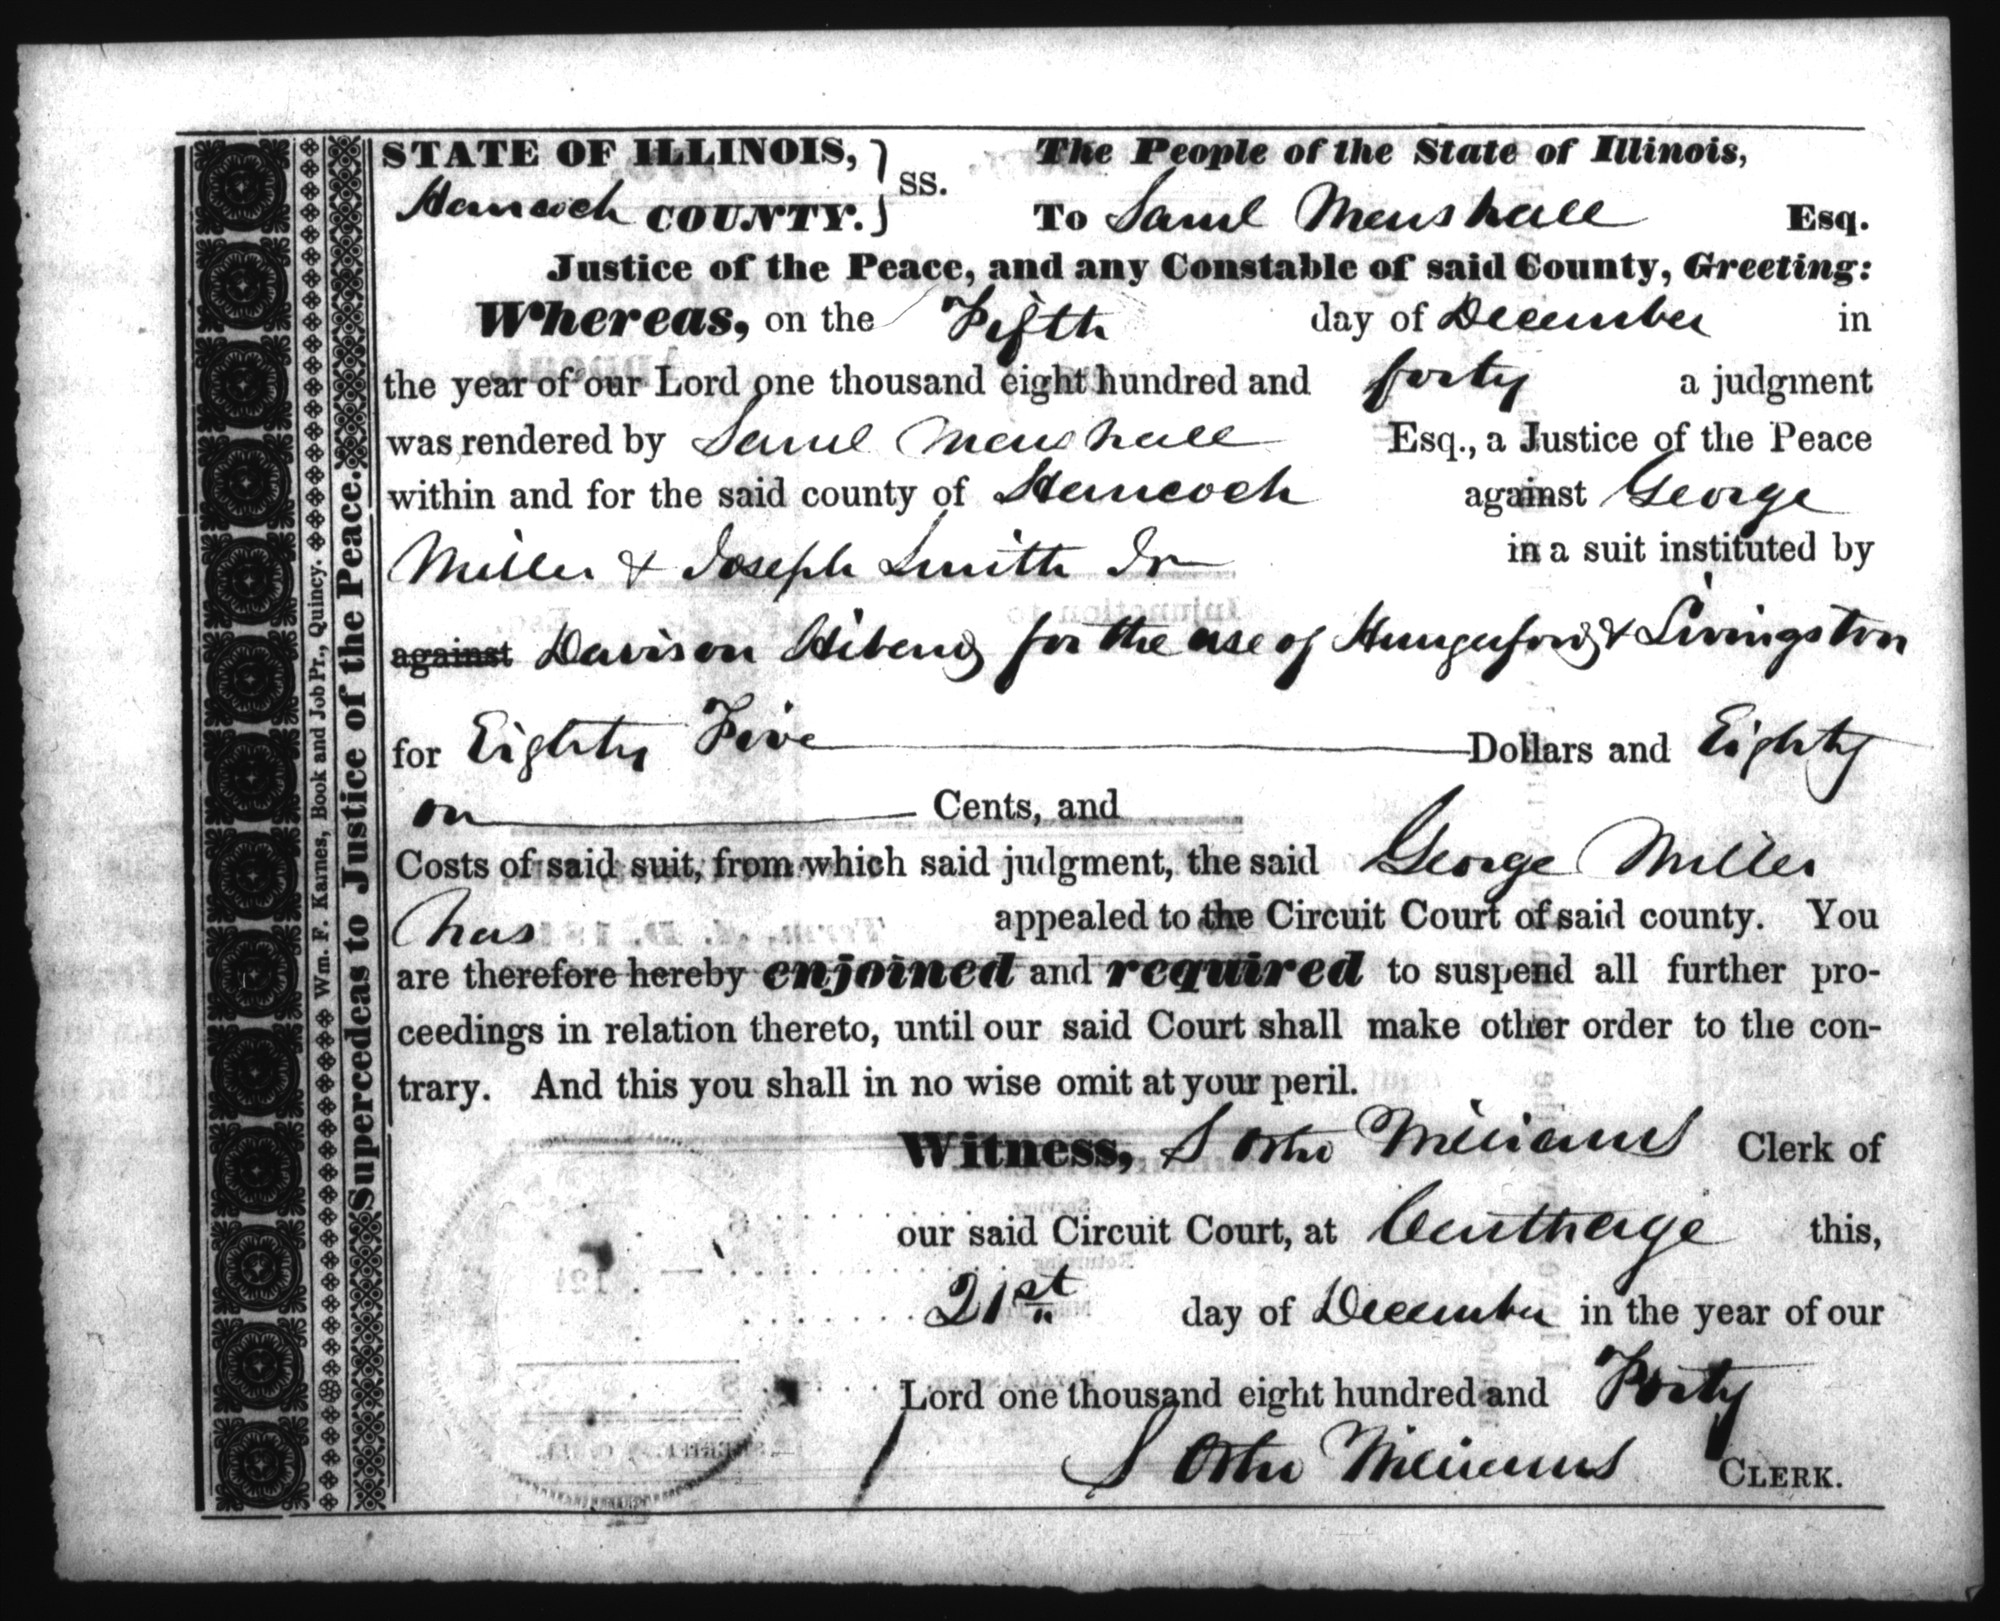 STATE OF ILLINOIS, } ss. The People of the State of Illinois,
Hancock COUNTY. To Saml Marshall Esq.
Justice of the Peace, and any Constable of said County, Greeting:
Whereas, on the Fifth day of December in
the year of our Lord one thousand eight hundred and forty a judgment
was rendered by Saml Marshall Esq., a Justice of the Peace
within and for the said county of Hancock against George
Miller & Joseph Smith Jr in a suit instituted by
against Davison Hibard for the use of Hungerford & Livingston
for Eighty Five Dollars and Eighty
on Cents, and
Costs of said suit, from which said judgment, the said George Miller
has appealed to the Circuit Court of said county. You
are therefore hereby enjoined and required to suspend all further pro-
ceedings in relation thereto, until our said Court shall make other order to the con-
trary. And this you shall in no wise omit at your peril.
Witness, S Otho Williams Clerk of
our said Circuit Court, at Carthage this,
21st day of December in the year of our
Lord one thousand eight hundred and Forty
S Otho Williams CLERK.
Supercedeas to Justice of the Peace.
Wm. F. Karnes, Book and Job Pr., Quincy.